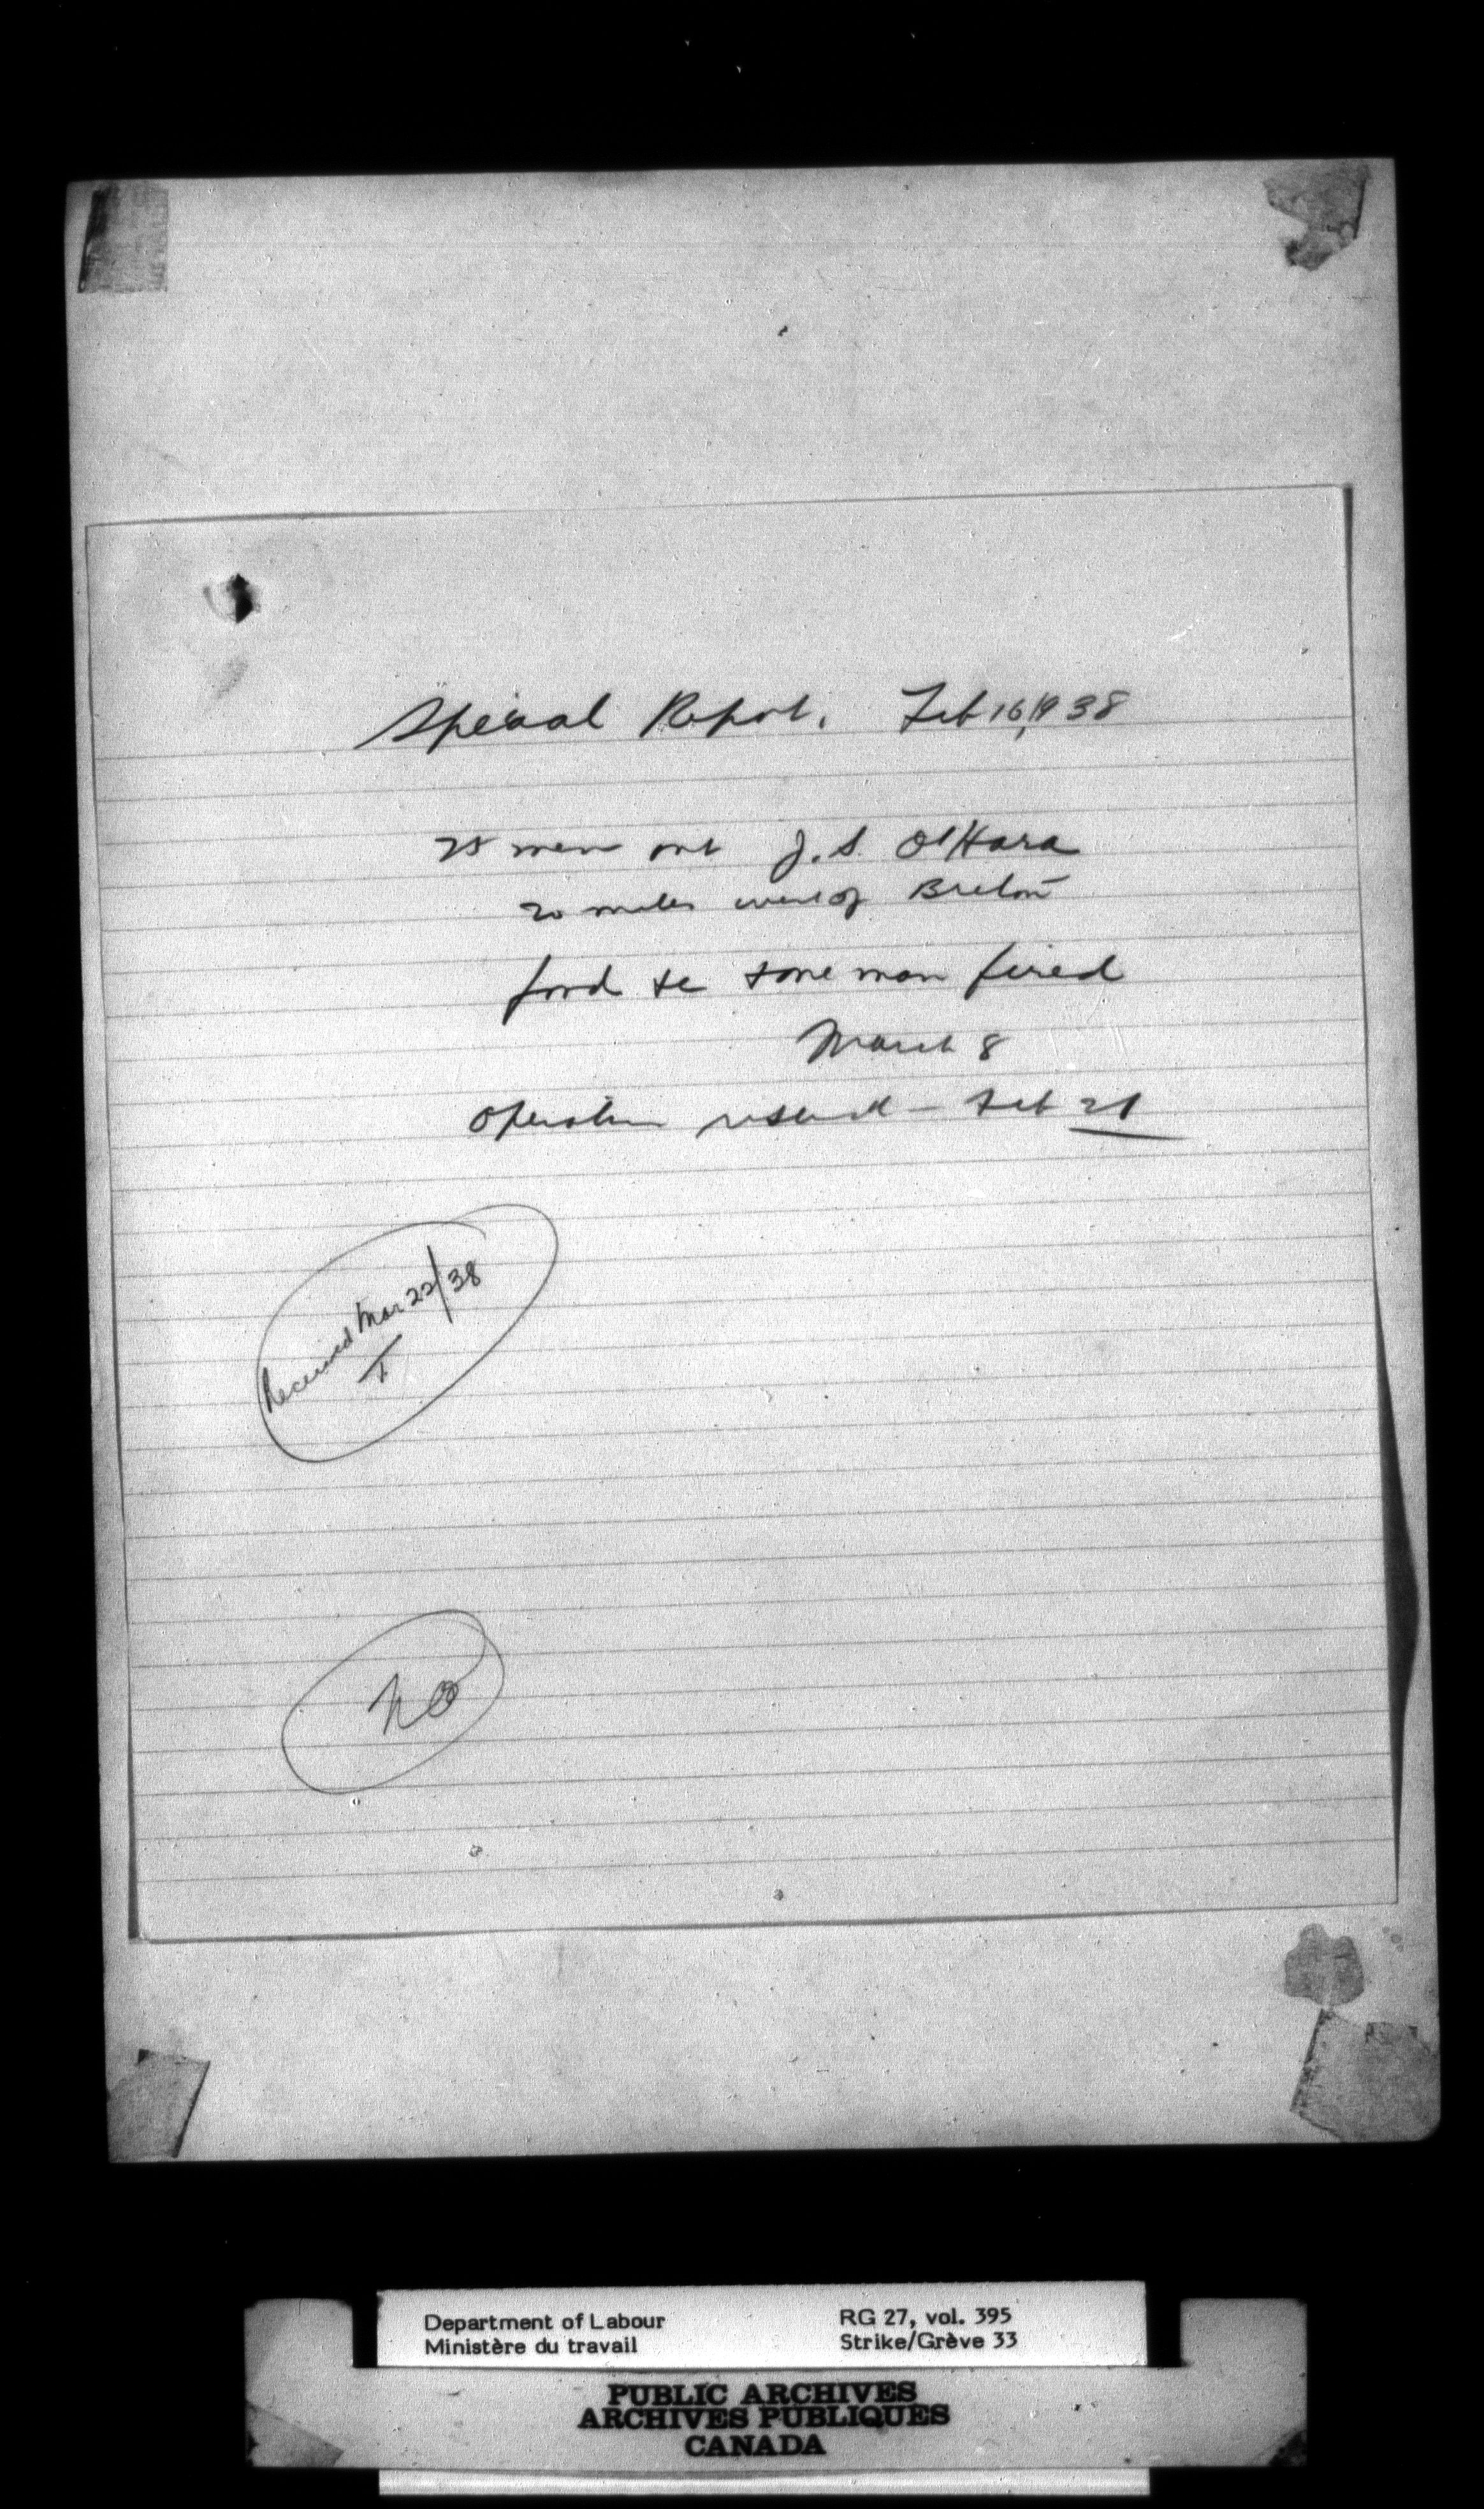 Special Report. Feb 16, 1938
25 men out J. S. O'Hara
20 miles west of Breton
food etc & one man fired
March 8
Operation resumed - Feb 21
Received Mar 22/38
No
Department of Labour
Ministère du travail
RG 27, vol. 395
Strike/Grève 33
PUBLIC ARCHIVES
ARCHIVES PUBLIQUES
CANADA